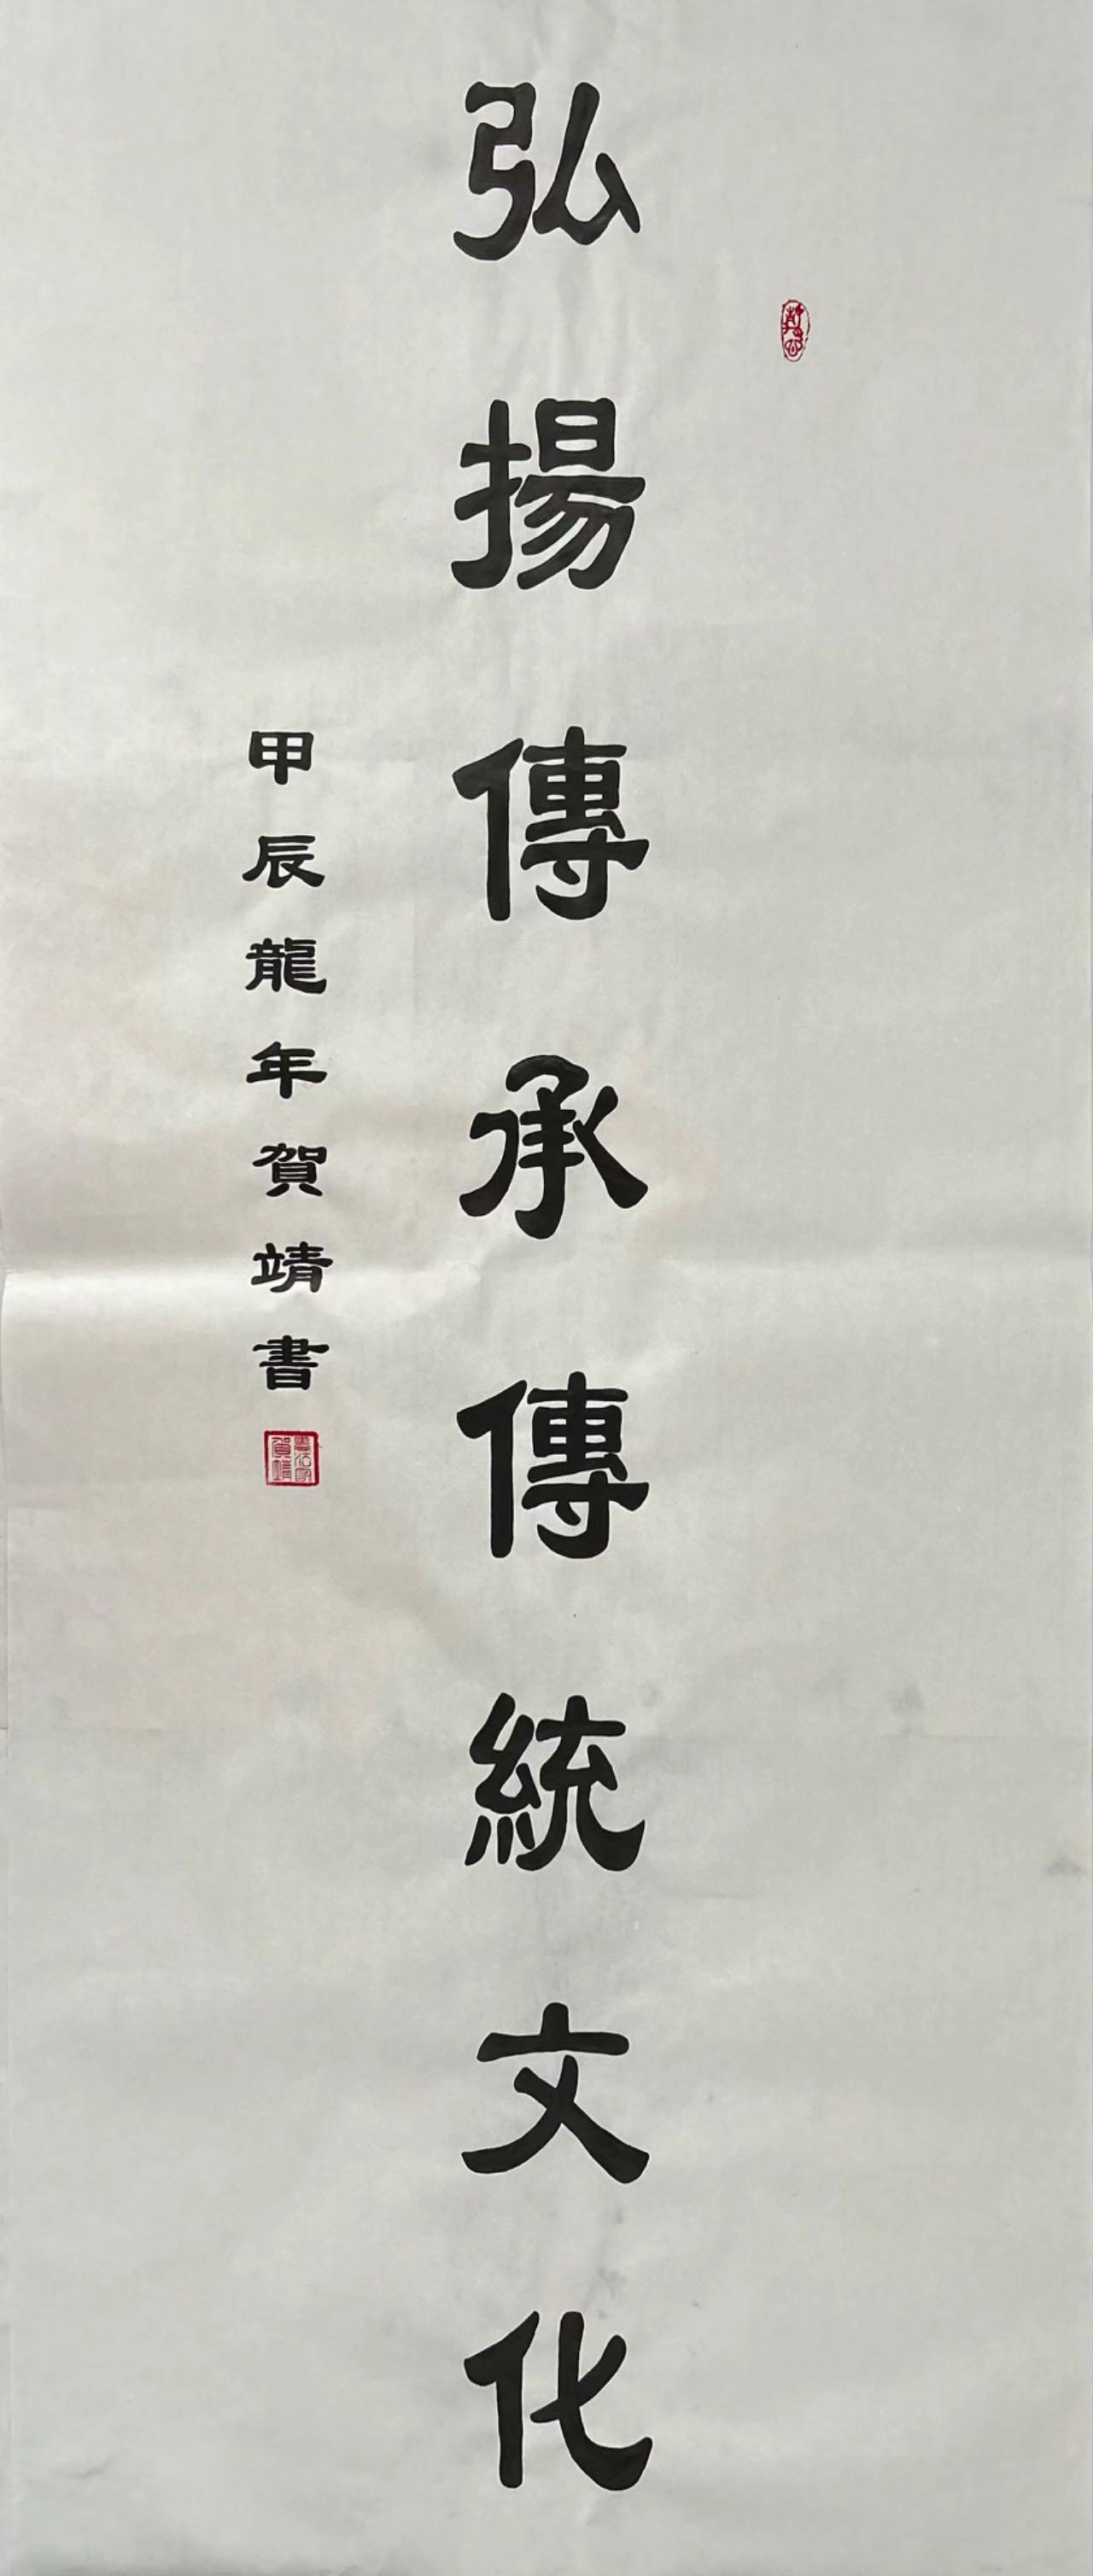 弘揚傳承傳統文化
甲辰龍年賀靖書